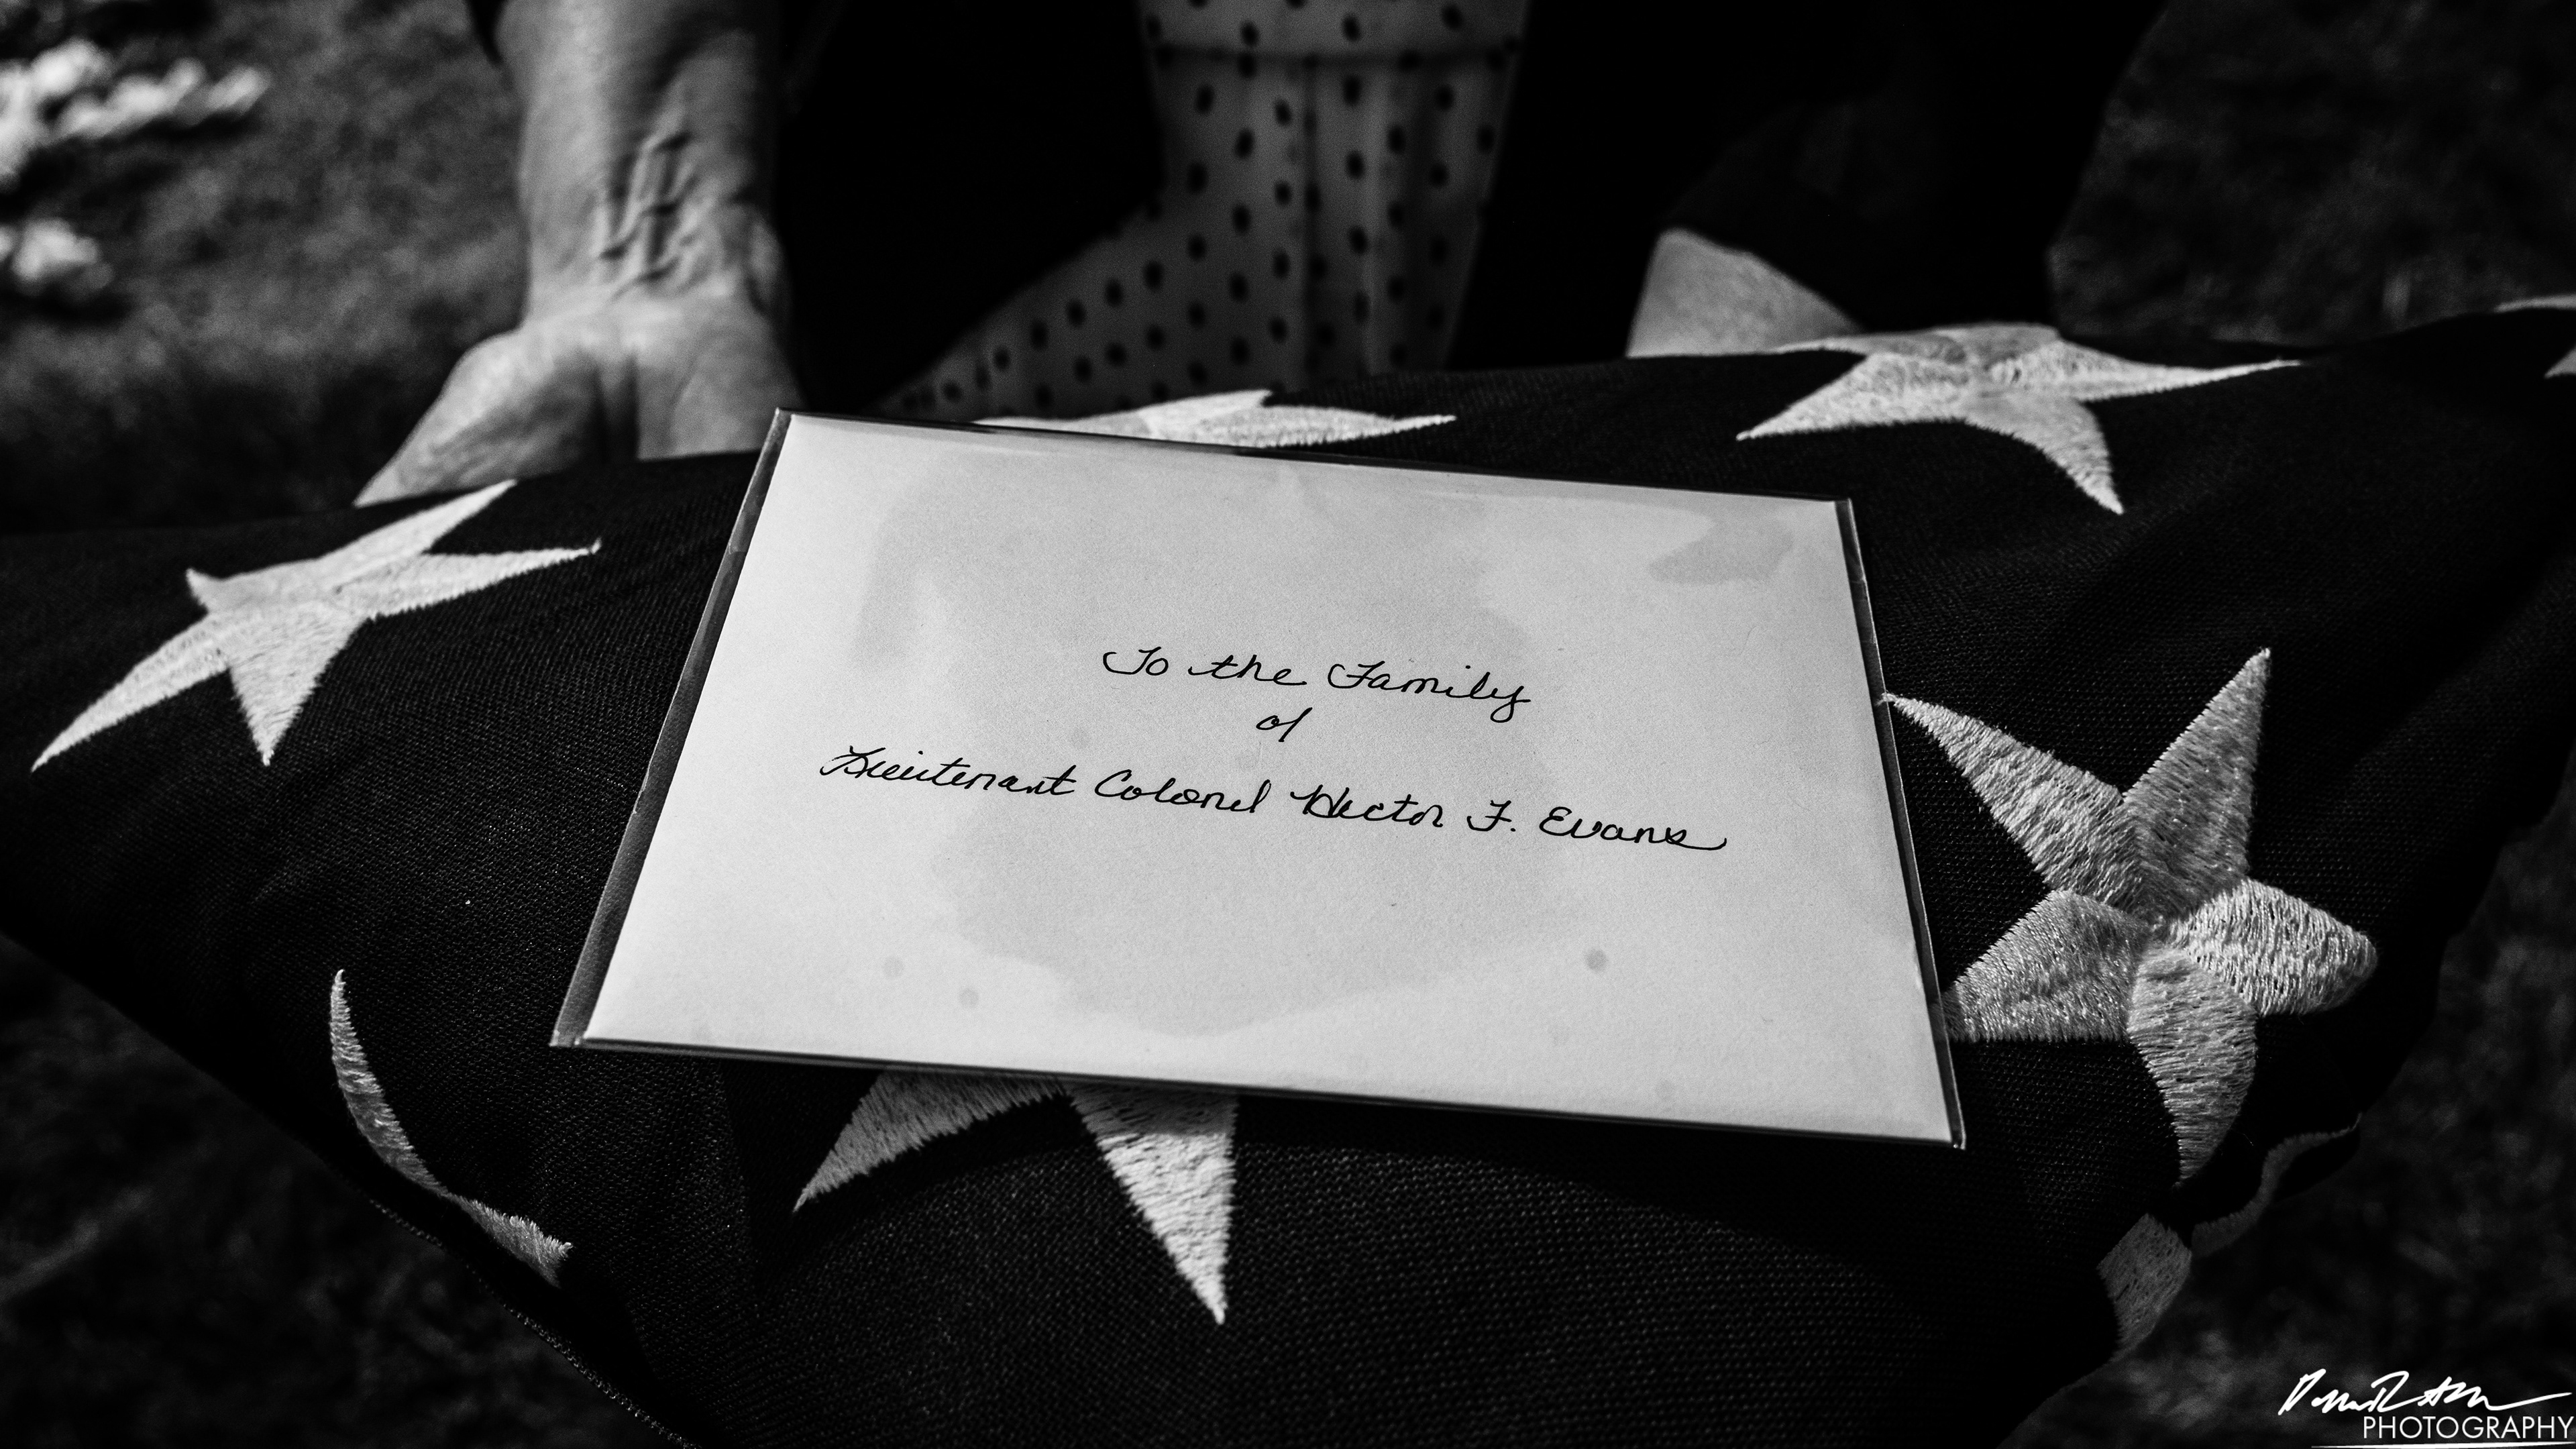 To the Family
of
Lieutenant Colonel Hector F. Evans
PHOTOGRAPHY